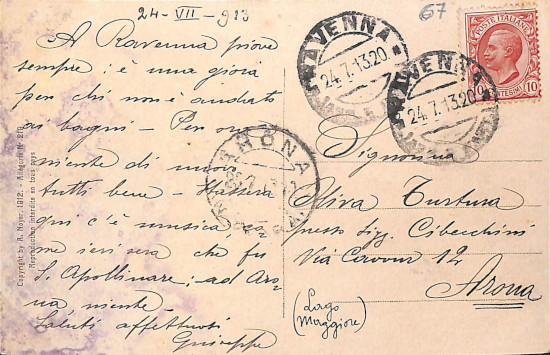 24-VII-913
67
A Ravenna piove
sempre: è una gioia
per chi non è andato
ai bagni - Per ora
niente di nuovo
tutti bene - Stasera
qui c'è musica, co-
me ieri sera che fu
S. Apollinare; ad Aro-
na niente
Saluti affettuosi
Giuseppe
Copyright by A. Noyer. 1912. - Allégorie N° 219
Reproduction interdite en tous pays
RAVENNA
24.7.13.20
RAVENNA
24.7.13.20
POSTE ITALIANE
CENTESIMI 10
ARONA
Signorina
Oliva Turtura
presso Sig. Cibecchini
Via Cavour 12
Arona
(Lago
Maggiore)